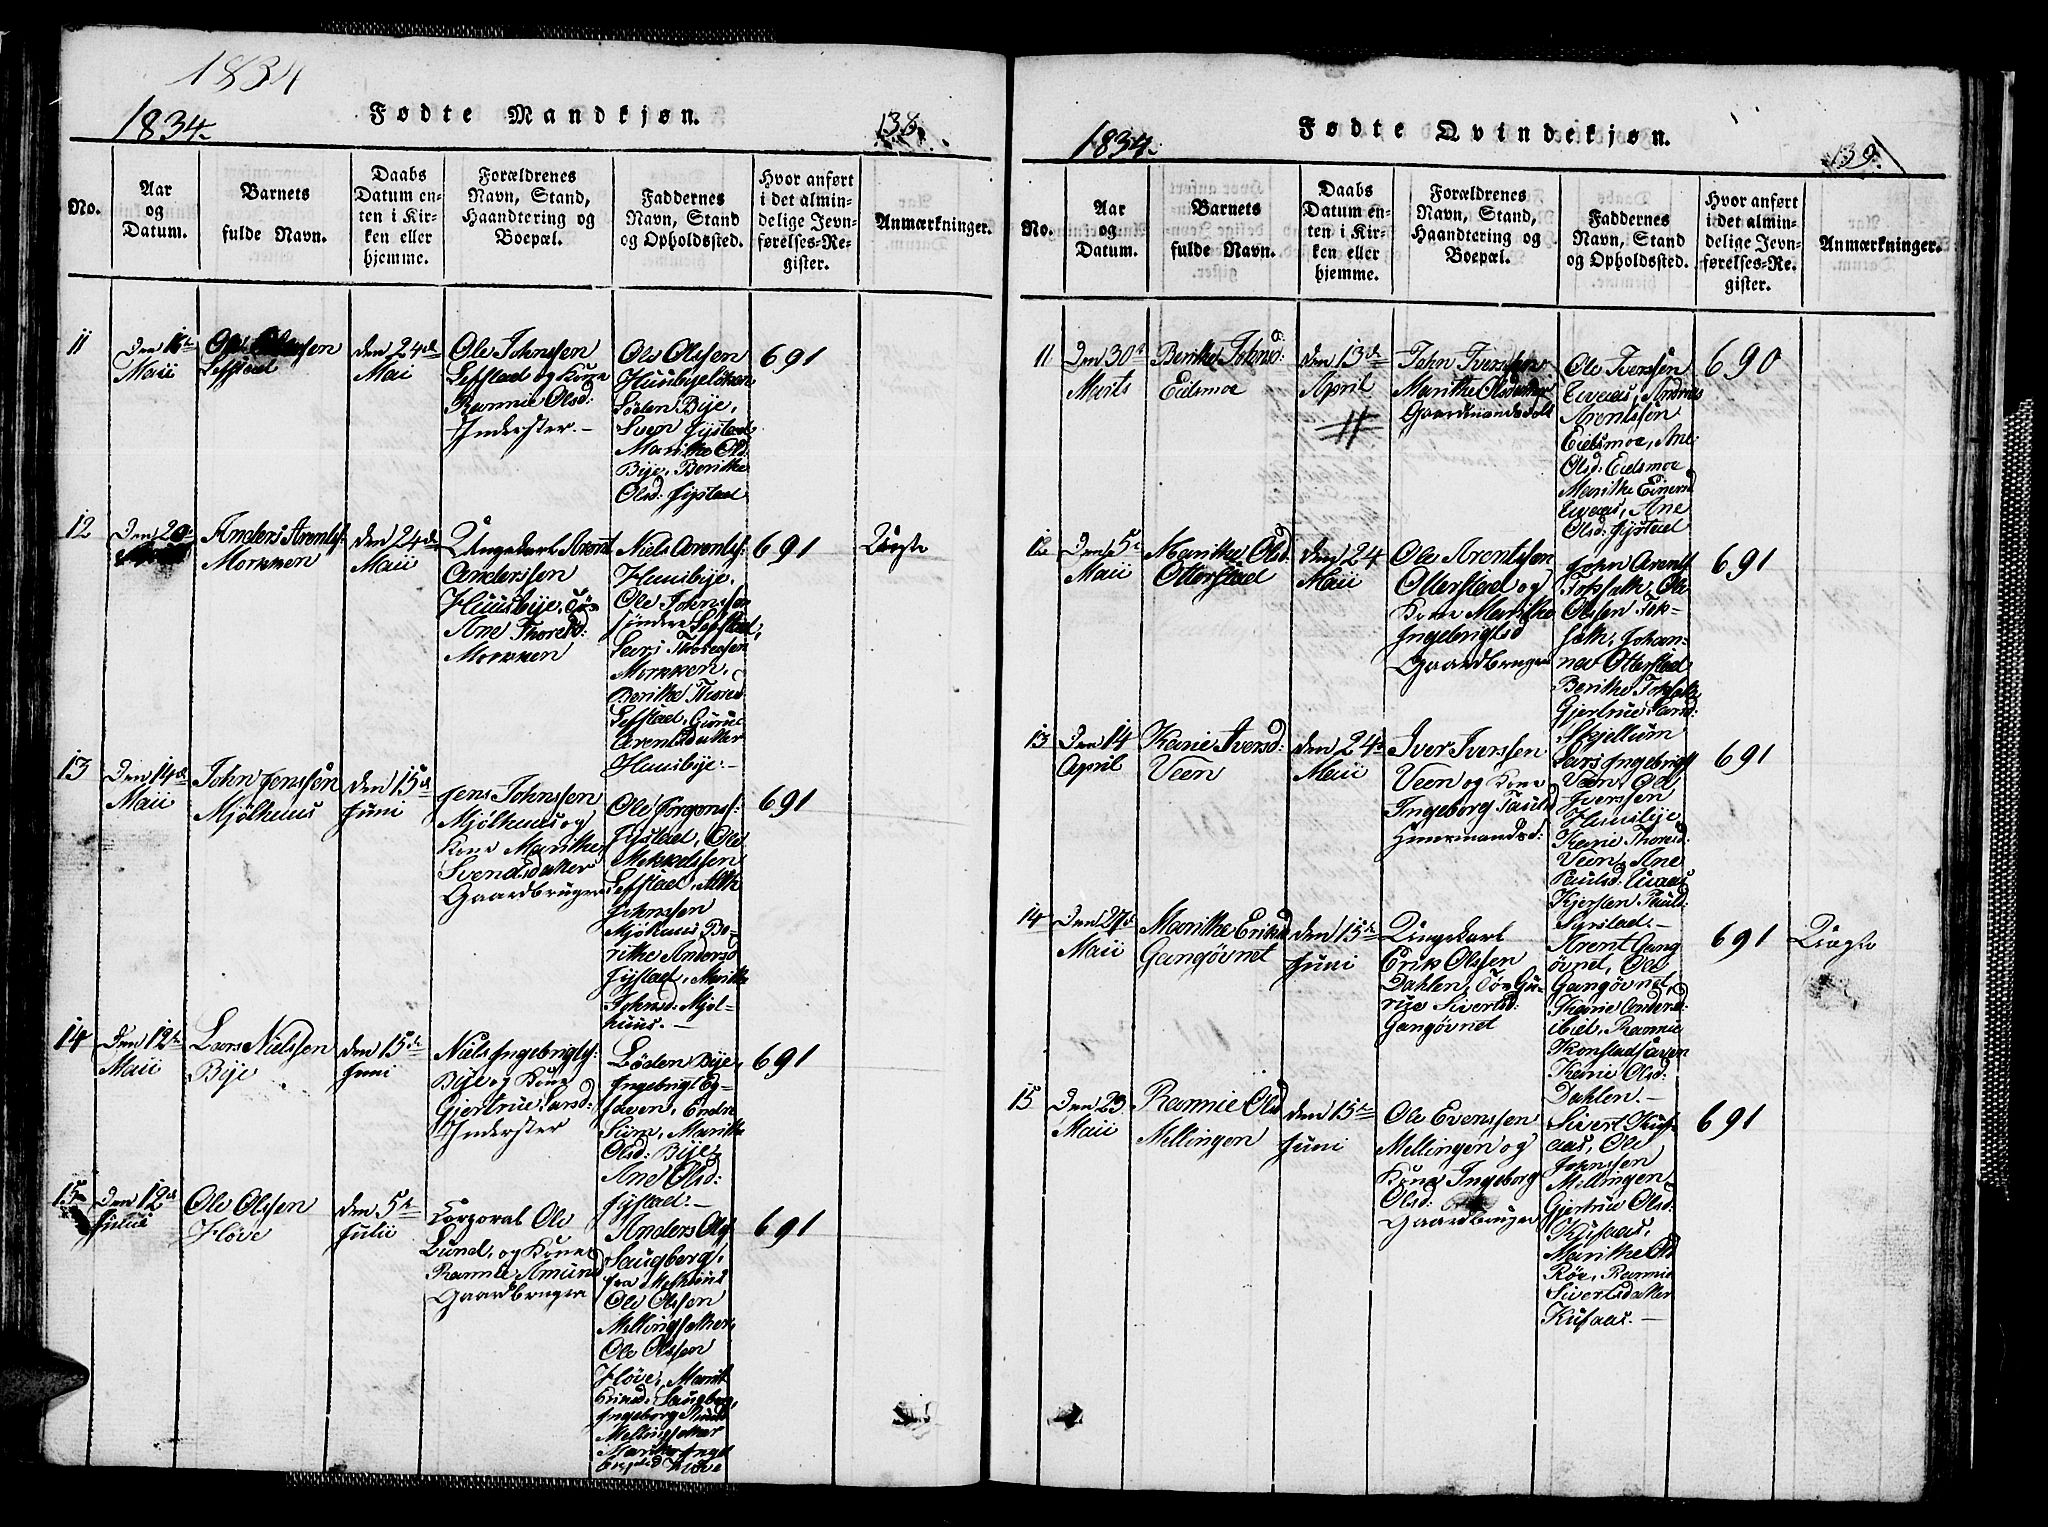 1834
1834.
Fødte Mandkjøn.
138.
No.
Aar
og
Datum.
Barnets
fulde Navn.
Daabs
Datum en-
ten i Kir-
ken eller
hjemme.
Forældrenes
Navn, Stand,
Haandtering og
Boepæl.
Faddernes
Navn, Stand
og Opholdssted.
Hvor anført
i det almin-
delige Jevn-
førelses-Re-
gister.
Anmærkninger.
11
Maii
Leffstad
den 24de
Mai
Ole Johnssen
Leffstad og Kone
Rannie Olsd:
Inderster.-
Ole Olssen
Huusbyeløken
Løden Bije,
Sven Fystad
Marithe Ols
Bije, Berithe
Olsd: Fystad
691
12
Den 20
Anders Arents
Morkken
den 24de
Maii
Ungekarl Arent
Anderssen
Huusbije, Tøs
Ane Thoresd:
Morkken
Niels Arents:
Huusbije,
Ole Johnssen
søndre Leffstad,
Lars Thoresen
Morkken,
Berithe Thoresd
Leffstad, Guruе
Arentsdatter
Huusbije.-
691
Uægte
13
Den 14de
Maii
John Jenssen
Mjølhuus
den 15de
Juni
Jens Johnssen
Mjølhuus og
Kone Marithe
Svendsdatter
Gaardbruger
Ole Jorgenss:
Fystad, Ole
Mikkelssen
Leffstad,
Johnssen
Mjøhuus Be-
rithe Andersd
Fystad, Marithe
Johnsd: Mjøl-
huus.-
691
14
Den 12te
Maii
Lars Nielssen
Bije
den 15de
Juni
Niels Ingebrigts:
Bije og Kone
Gjertrue Larsd:
Inderster
Løden Bije,
Ingebrigt Eg-
saven, Endre
Siem, Marithe
Olsd: Bije,
Ane Olsd:
Fystad.-
691
15
Den 12de
Ole Olssen
Fløve
den 5te
Julii
Corporal Ole
Lund, og Kone
Rannie Amunds
Gaardbruger
Anders Ols
Saugberg,
fra Melhuus
Ole Olssen
Mellingsether,
Ole Olssen
Fløve, Marit
Eriksd: Saugberg,
Ingeborg
Mellingsetter
Marithe Inge
brigtsd Fløve
691
1834.
Fødte Qvindekjøn.
139.
No.
Aar
og
Datum.
Barnets
fulde Navn.
Daabs
Datum en-
ten i Kir-
ken eller
hjemme.
Forældrenes
Navn, Stand,
Haandtering og
Boepæl.
Faddernes
Navn, Stand
og Opholdssted.
Hvor anført
i det almin-
delige Jevn-
førelses-Re-
gister.
Anmærkninger.
11
Den 30te
Marts
Berithe Johnsd:
Eidsmoe
den 13de
April
John Iverssen
Marithe Olsdatter
Gaardmandsfolk
Ole Iverssen
Evaas, Anders
Arentssen
Eidsmoe, Ane
Olsd: Eidsmoe
Marithe Einersd
Evaas, Ane
Olsd: Fystad
690
12
Den 5te
Maii
Marithe Olsd:
Otterstad
den 24
Maii
Ole Arentssen
Otterstad og
Kone Marithe
Ingebrigtsd
Gaardbruger
John Arents
Foksath, Ole
Olssen Fok-
sath, Johan-
nes Otterstad
Berithe Foksath
Gjertrue Larsd:
Skjellum
691
13
Den 14
April
Karie Iversd:
Veen
den 24de
Maii
Iver Iverssen
Veen og Kone
Ingeborg Paulsd
Huusmandsd:
Lars Ingebrigt
Veen, Ole
Iverssen
Huusbije,
Karie Thoresd:
Veen, Ane
Paulsd: Evaas
Kjersten Pauls:
Syrstad.-
691
14
Den 27de
Maii
Marithe Eriksd
Gangøvnet
den 15de
Juni
Ungekarl
Erik Olssen
Dahlen, Tøs Gu-
rue Sivertsd:
Gangøvnet
Arent Gang
øvnet, Ole
Gangøvnet,
Karie Andersd:
ibid, Rannie
Konstadsaven
Karie Olsd:
Dahlen.-
691
Uægte
15
Den 23
Maii
Rannie Olsd
Mellingen
den 15de
Juni
Ole Evenssen
Mellingen og
Kone Ingeborg
Olsd:
Gaardbruger
Sivert Kuf-
aas, Ole
Johnssen
Mellingen
Gjertrue Olsd:
Kufaas,
Marithe Ols
Røe, Rannie
Sivertsdatter
Kufaas.-
691